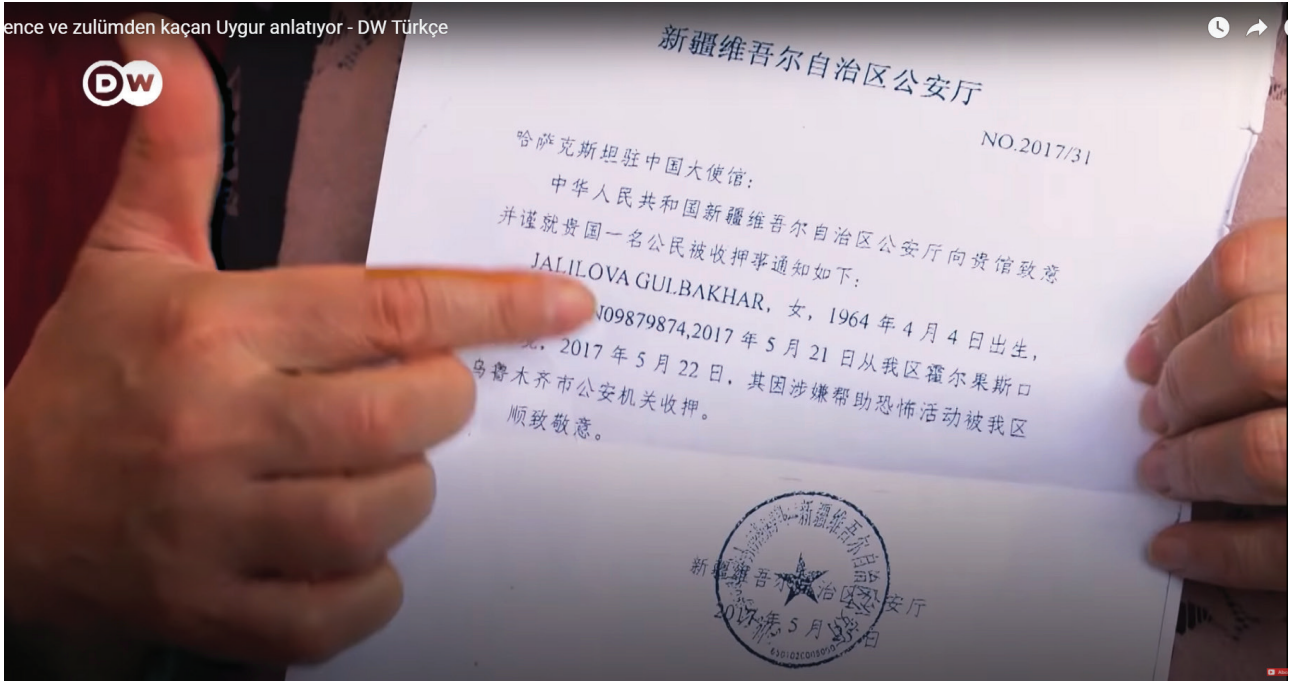 ence ve zulümden kaçan Uygur anlatıyor - DW Türkçe
DW
新疆维吾尔自治区公安厅
NO.2017/31
哈萨克斯坦驻中国大使馆：
中华人民共和国新疆维吾尔自治区公安厅向贵馆致意
并谨就贵国一名公民被收押事通知如下：
JALILOVA GULBAKHAR，女，1964 年 4 月 4 日出生，
N09879874,2017 年 5 月 21 日从我区霍尔果斯口
2017 年 5 月 22 日，其因涉嫌帮助恐怖活动被我区
乌鲁木齐市公安机关收押。
顺致敬意。
新疆维吾尔自治区公安厅
2017 年 5 月 25 日